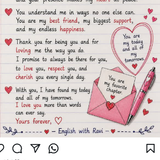 You understand me in ways no one else can.
You are my best friend, my biggest support,
and my endless happiness.
Thank you for being you and for
loving me the way you do.
I promise to always be there for you,
to love you, respect you, and
cherish you every single day.
With you, I have found my today
and all of my tomorrows.
I love you more than words
can ever say.
Yours forever,
You are
my today
and all of
my
tomorrows.
You are
my favorite
chapter.
English with Ravi